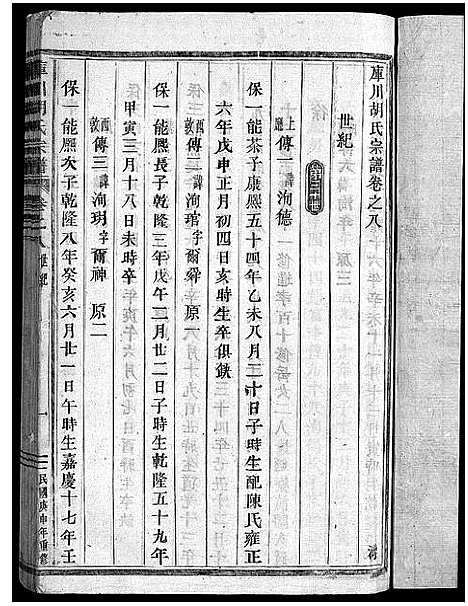 庫川胡氏宗譜卷之八
世紀
上傳一諱洵德
傳
保一能荼子康熙五十四年乙未八月二十日子時生配陳氏雍正
六年戊申正月初四日亥時生卒俱缺
西傳二諱洵琯字爾舜 原一
敦
保一能熙長子乾隆三年戊午二月廿二日子時生乾隆五十九年
甲寅三月十八日未時卒
西傳三諱洵玥字爾神 原二
敦
保一能熙次子乾隆八年癸亥六月廿一日午時生嘉慶十七年壬
庫川胡氏宗譜 卷之八 世紀 一 民國庚申年重修